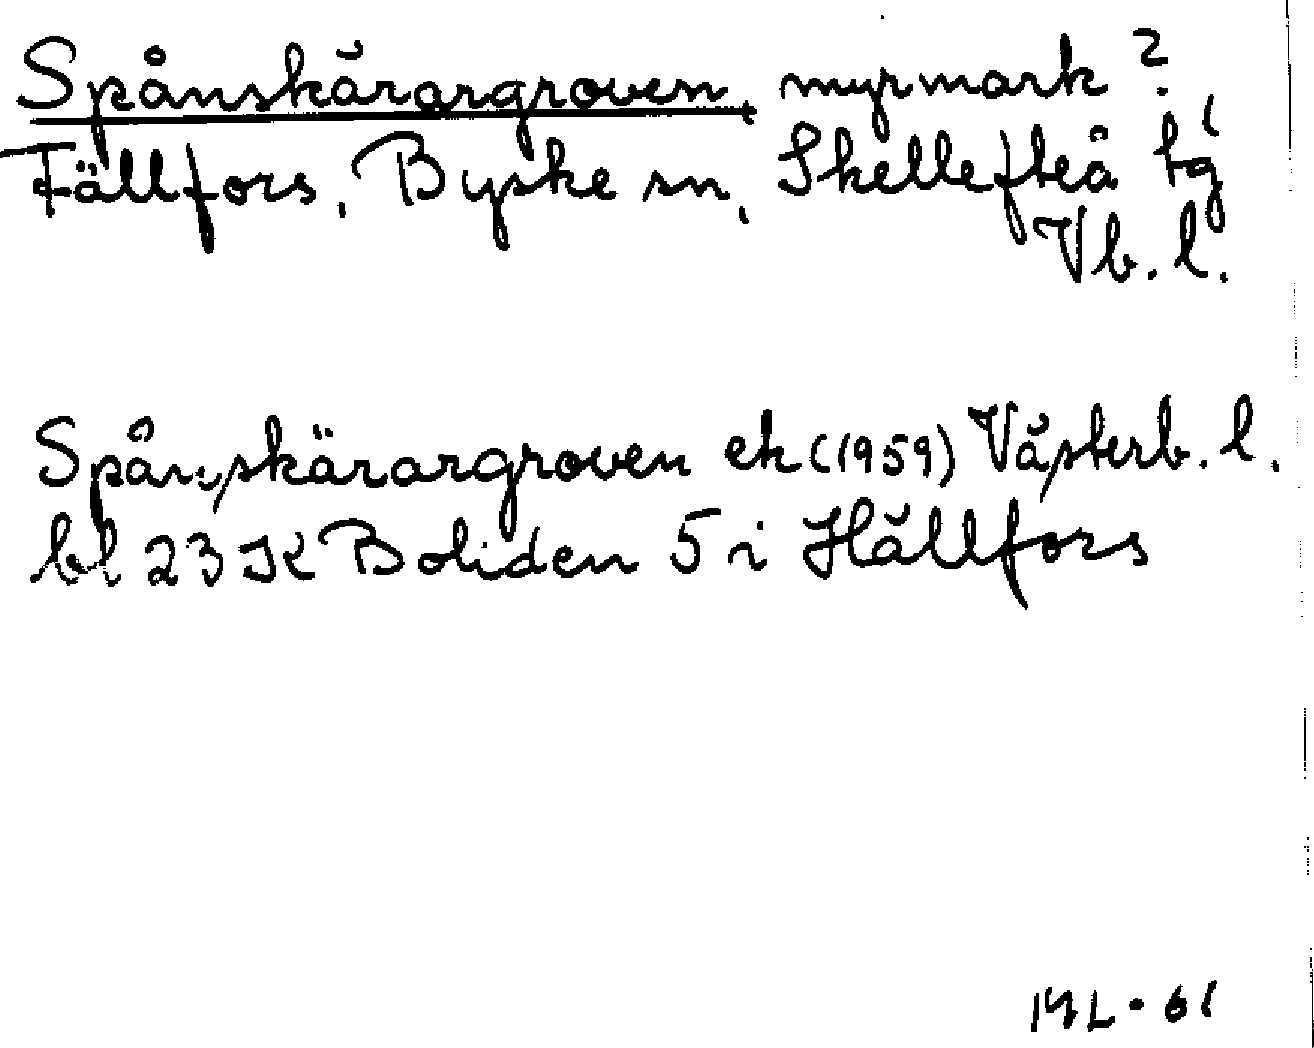 Spånskärargroven, myrmark?
Fällfors, Byske sn, Skellefteå tg,
Vb. l.
Spånskärargroven ek (1959) Västerb. l.
bl 23 K Boliden 5 i Hällfors
ML-61